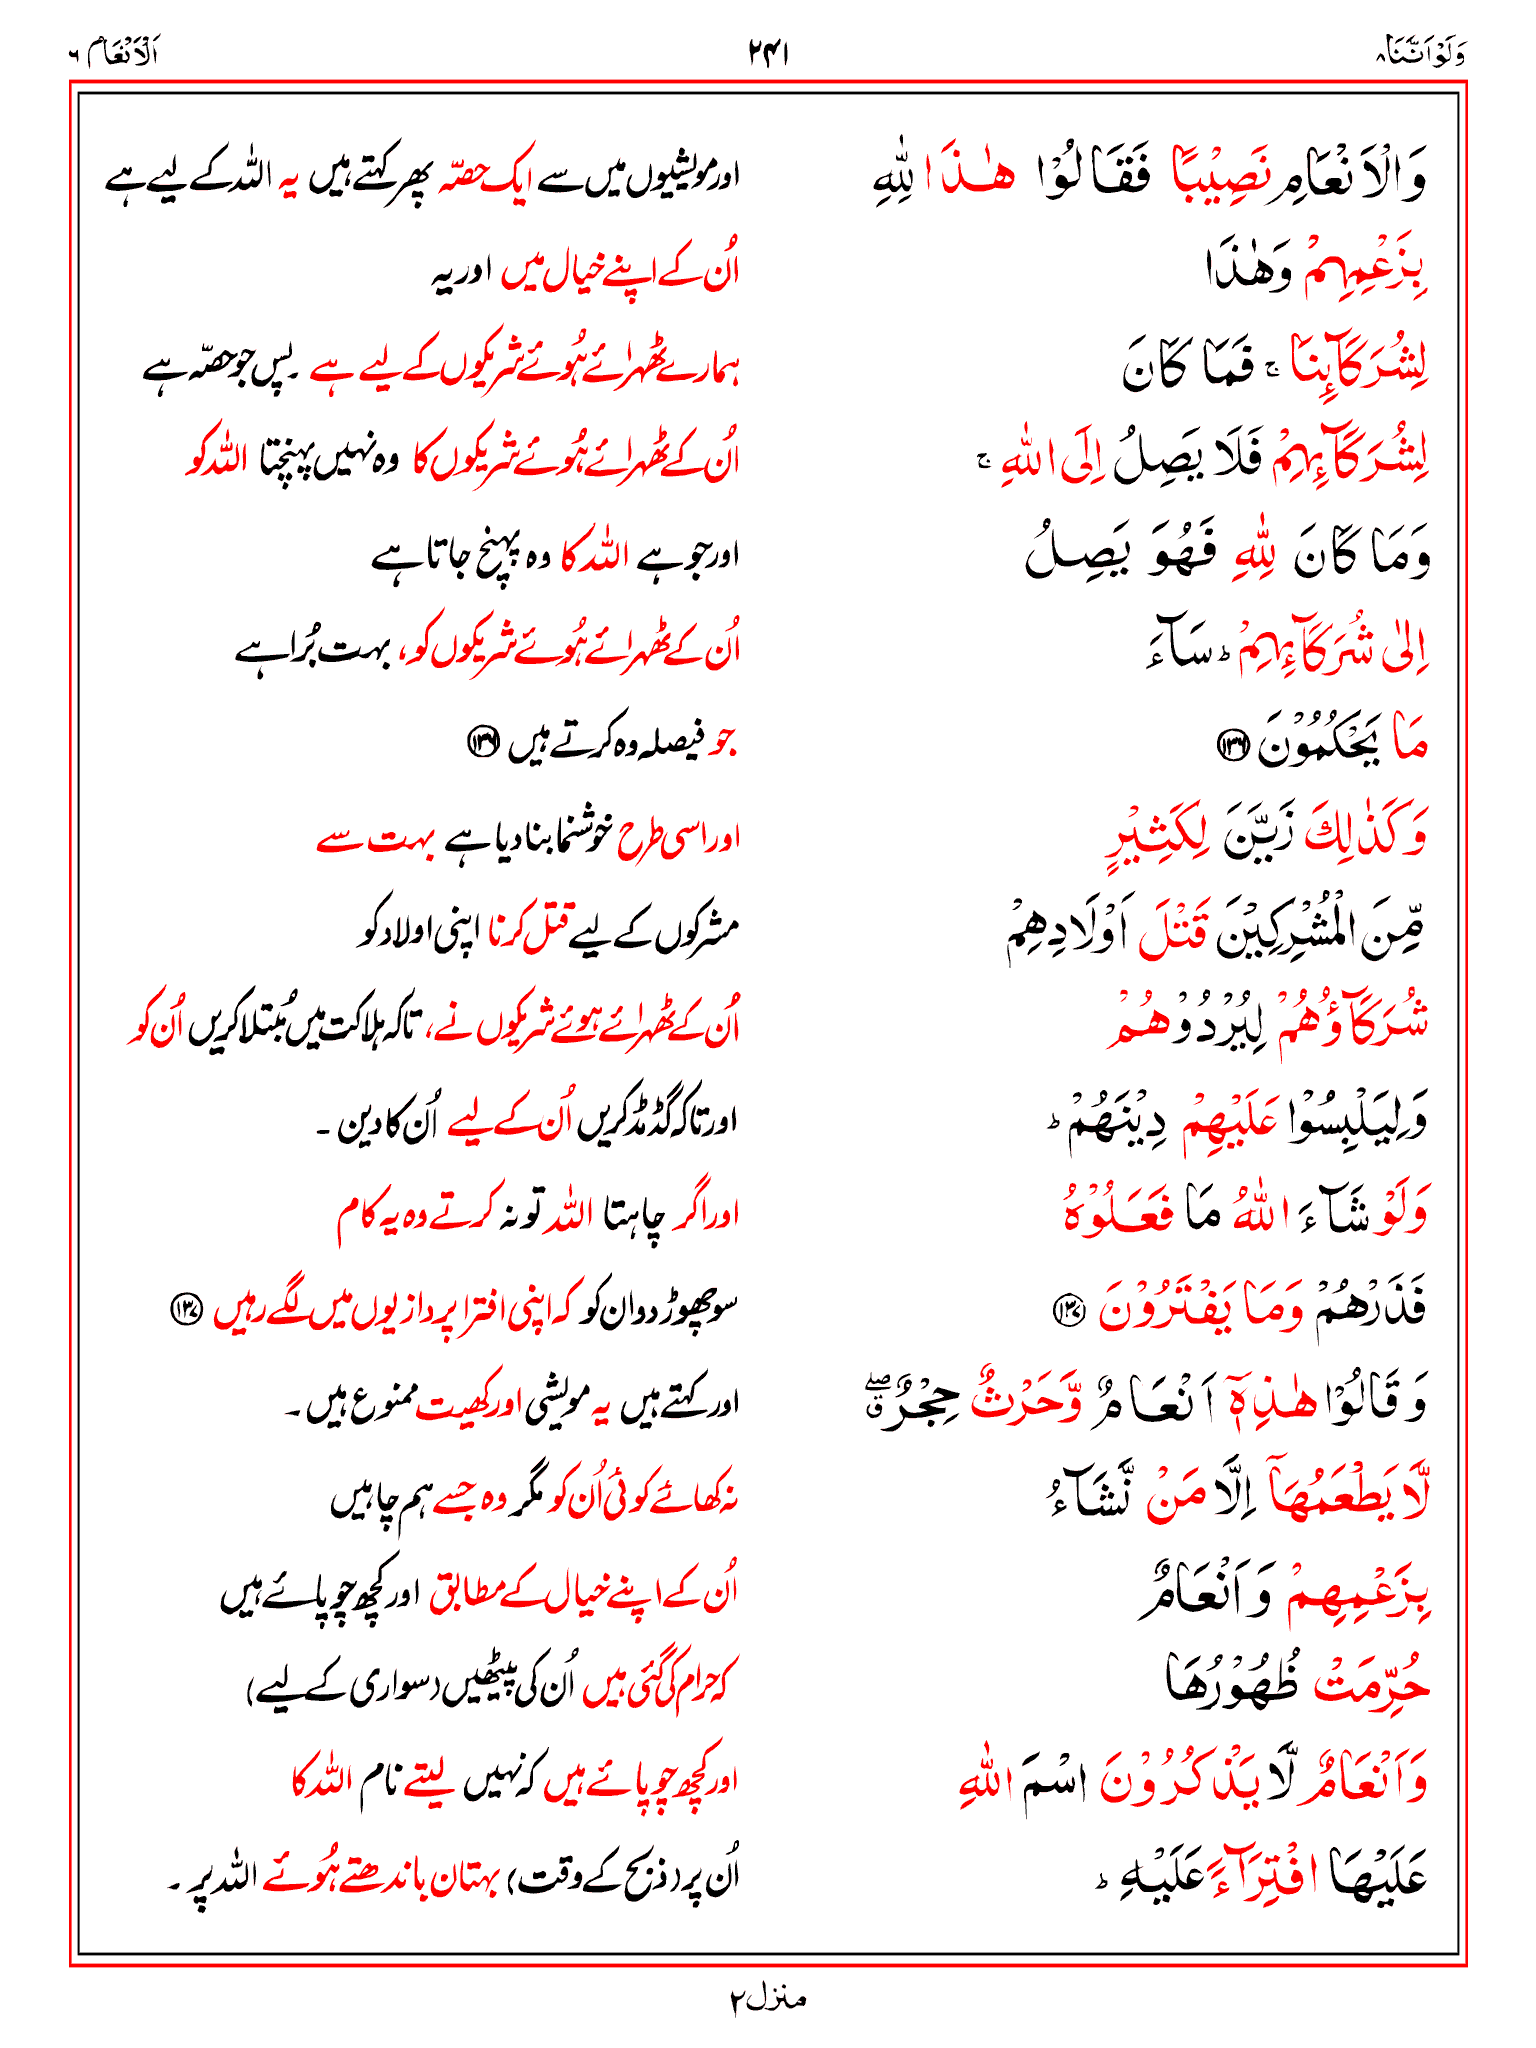 وَلَوْ اَنَّنَا ۸ ۲۴۱ اَلْاَنْعَام ۶
وَالْاَنْعَامِ نَصِيْبًا فَقَالُوْا هٰذَا لِلّٰهِ اور مویشیوں میں سے ایک حصّہ پھر کہتے ہیں یہ اللہ کے لیے ہے
بِزَعْمِهِمْ وَهٰذَا اُن کے اپنے خیال میں اور یہ
لِشُرَكَآئِنَا ۚ فَمَا كَانَ ہمارے ٹھہرائے ہُوئے شریکوں کے لیے ہے ۔ پس جو حصّہ ہے
لِشُرَكَآئِهِمْ فَلَا يَصِلُ اِلَى اللّٰهِ ۚ اُن کے ٹھہرائے ہُوئے شریکوں کا وہ نہیں پہنچتا اللہ کو
وَمَا كَانَ لِلّٰهِ فَهُوَ يَصِلُ اور جو ہے اللہ کا وہ پہنچ جاتا ہے
اِلٰى شُرَكَآئِهِمْ ؕ سَآءَ اُن کے ٹھہرائے ہُوئے شریکوں کو، بہت بُرا ہے
مَا يَحْكُمُوْنَ ۝۱۳۶ جو فیصلہ وہ کرتے ہیں ۝۱۳۶
وَكَذٰلِكَ زَيَّنَ لِكَثِيْرٍ اور اسی طرح خوشنما بنا دیا ہے بہت سے
مِّنَ الْمُشْرِكِيْنَ قَتْلَ اَوْلَادِهِمْ مشرکوں کے لیے قتل کرنا اپنی اولاد کو
شُرَكَآؤُهُمْ لِيُرْدُوْهُمْ اُن کے ٹھہرائے ہوئے شریکوں نے، تاکہ ہلاکت میں مُبتلا کریں اُن کو
وَلِيَلْبِسُوْا عَلَيْهِمْ دِيْنَهُمْ ؕ اور تاکہ گڈمڈ کریں اُن کے لیے اُن کا دین ۔
وَلَوْ شَآءَ اللّٰهُ مَا فَعَلُوْهُ اور اگر چاہتا اللہ تو نہ کرتے وہ یہ کام
فَذَرْهُمْ وَمَا يَفْتَرُوْنَ ۝۱۳۷ سو چھوڑ دو ان کو کہ اپنی افترا پردازیوں میں لگے رہیں ۝۱۳۷
وَقَالُوْا هٰذِهٖٓ اَنْعَامٌ وَّحَرْثٌ حِجْرٌ ۖق اور کہتے ہیں یہ مویشی اور کھیت ممنوع ہیں ۔
لَّا يَطْعَمُهَآ اِلَّا مَنْ نَّشَآءُ نہ کھائے کوئی اُن کو مگر وہ جسے ہم چاہیں
بِزَعْمِهِمْ وَاَنْعَامٌ اُن کے اپنے خیال کے مطابق اور کچھ چوپائے ہیں
حُرِّمَتْ ظُهُوْرُهَا کہ حرام کی گئی ہیں اُن کی پیٹھیں (سواری کے لیے)
وَاَنْعَامٌ لَّا يَذْكُرُوْنَ اسْمَ اللّٰهِ اور کچھ چوپائے ہیں کہ نہیں لیتے نام اللہ کا
عَلَيْهَا افْتِرَآءً عَلَيْهِ ؕ اُن پر (ذبح کے وقت) بہتان باندھتے ہُوئے اللہ پر ۔
منزل ۲